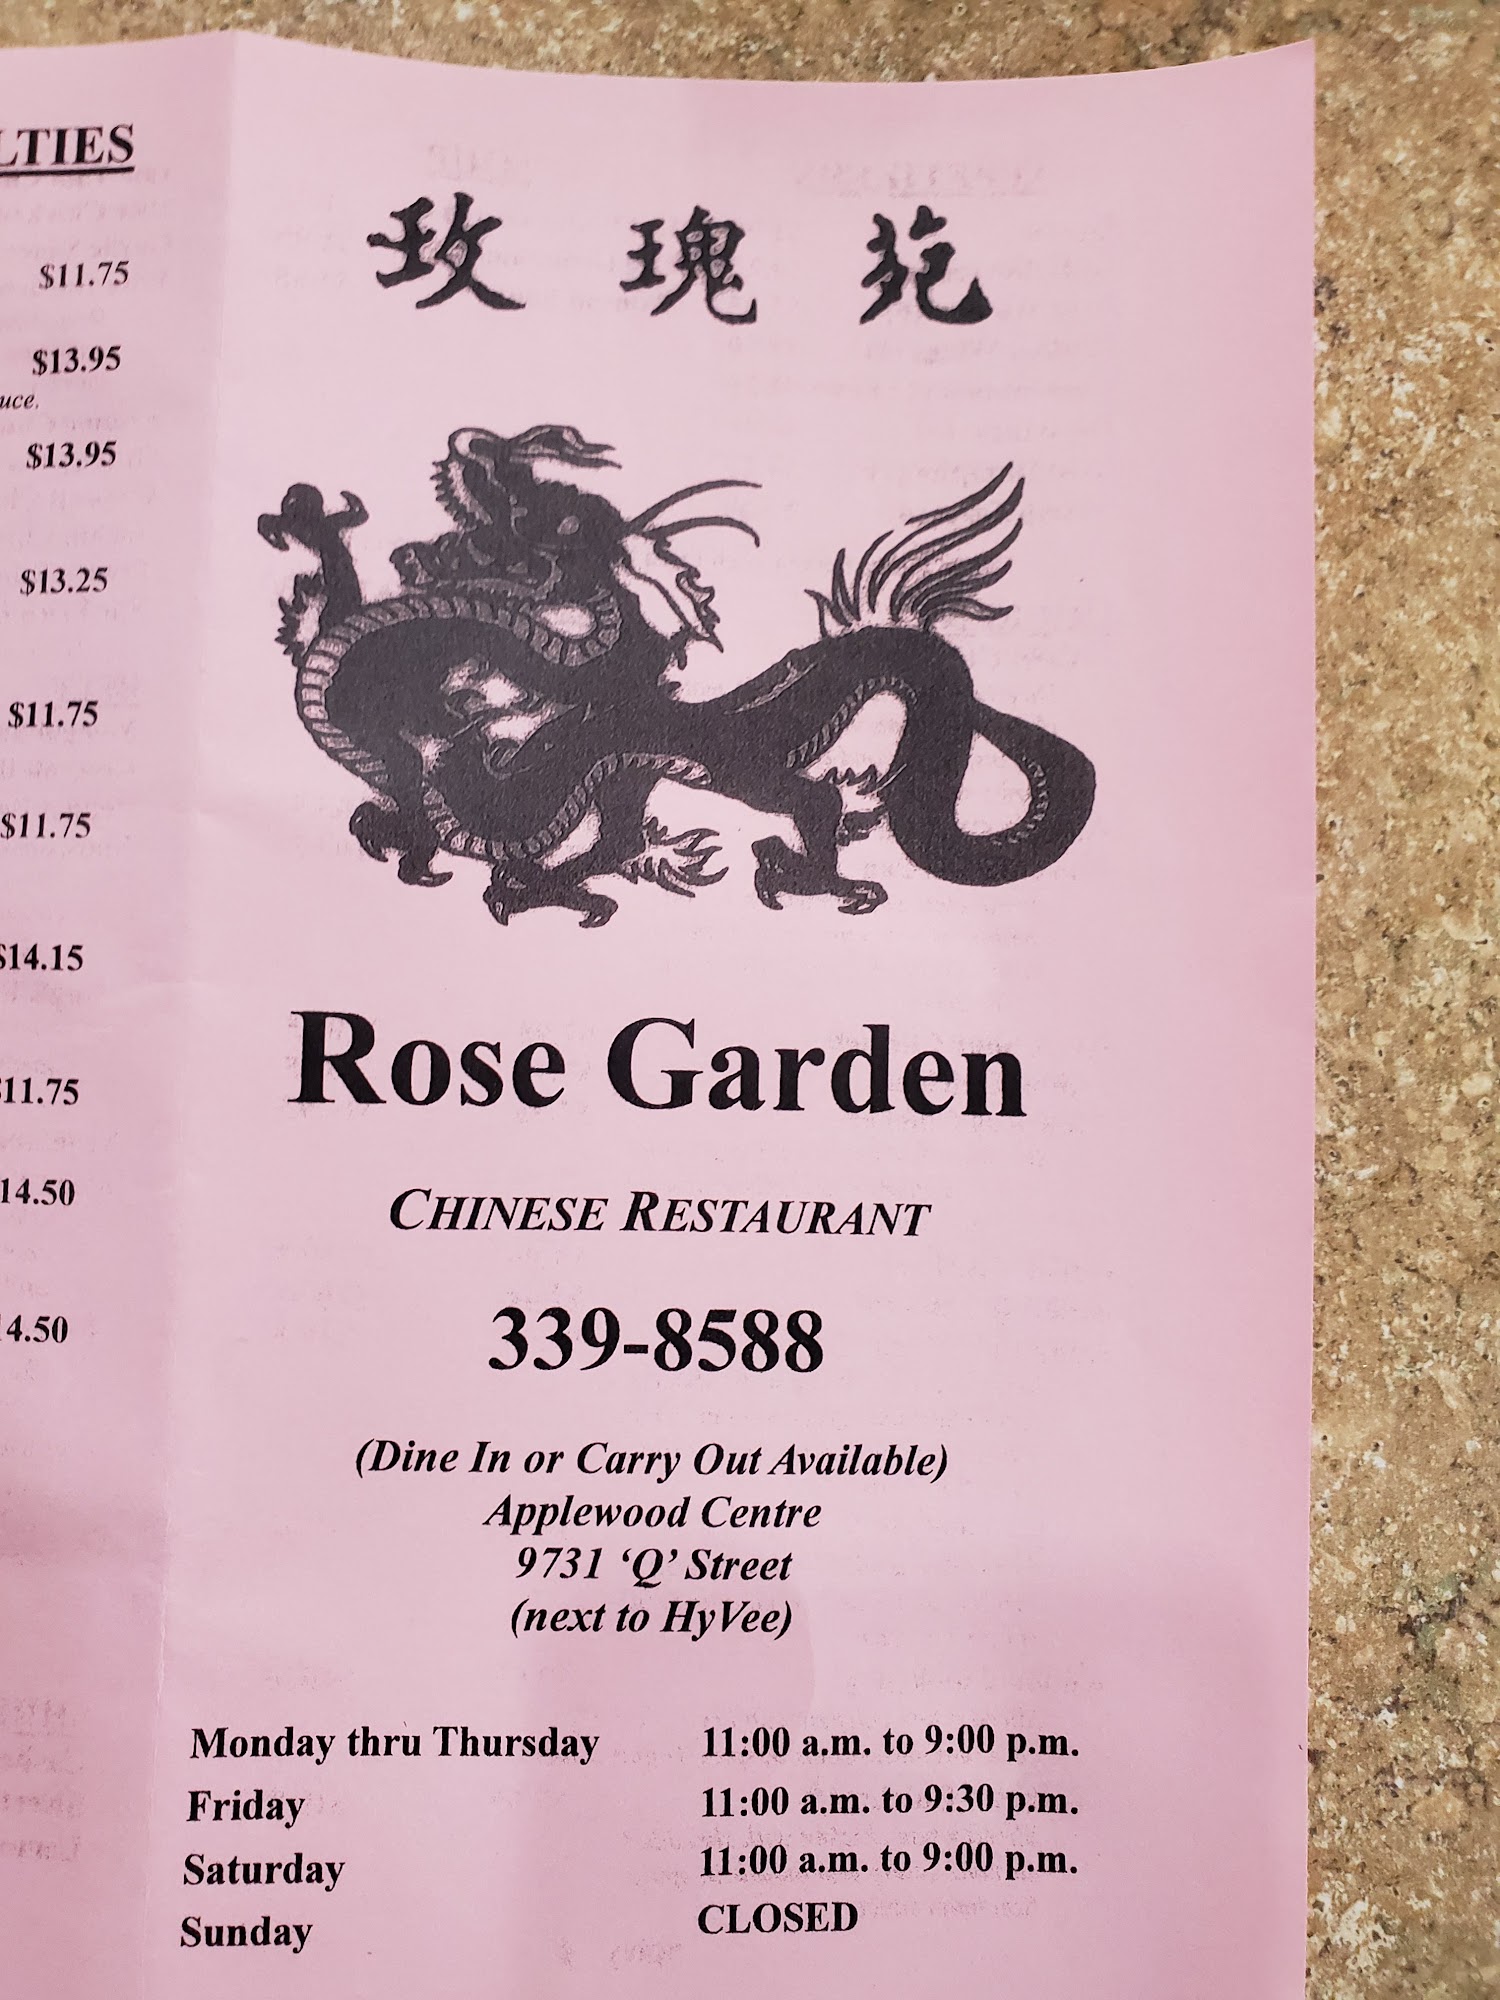 LTIES
$11.75
$13.95
uce.
$13.95
$13.25
$11.75
$11.75
$14.15
$11.75
14.50
4.50
玫瑰苑
Rose Garden
CHINESE RESTAURANT
339-8588
(Dine In or Carry Out Available)
Applewood Centre
9731 ‘Q’ Street
(next to HyVee)
Monday thru Thursday 11:00 a.m. to 9:00 p.m.
Friday 11:00 a.m. to 9:30 p.m.
Saturday 11:00 a.m. to 9:00 p.m.
Sunday CLOSED